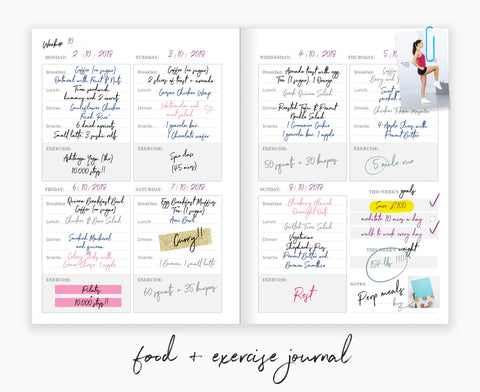 Week# 10
MONDAY: 2 . 10 . 2018
Breakfast: Coffee (no sugar)
Oatmeal with Fruit & Nuts
Lunch: Tuna sandwich
hummus and 2 carrots
Dinner: Cauliflower Chicken
Fried Rice
Snacks: 6 dried apricots
Small latte
EXERCISE:
Ashtanga Yoga (1hr)
10.000 steps!!
TUESDAY: 3 . 10 . 2018
Breakfast: Coffee (no sugar)
2 slices of toast + avocado
Lunch: Caesar Chicken Wrap
Dinner: Watermelon and
salad
Snacks: 1 granola bar
1 Chocolate wafer
EXERCISE:
Spin class
(45 mins)
WEDNESDAY: 4 . 10 . 2018
Breakfast: Avocado toast with egg
Tea (1 sugar)
Lunch: Greek Quinoa Salad
Dinner: Roasted Tofu & Peanut
Noodle Salad
Snacks: 1 Cinnamon Cookie
1 granola bar, 1 banana
EXERCISE:
50 squats + 30 burpees
THURSDAY: 5 . 10
Breakfast:
Lunch:
Dinner: Chicken Tikka Masala
Snacks: Apple Slices with
Peanut Butter
EXERCISE:
5 mile run
FRIDAY: 6 . 10 . 2018
Breakfast: Quinoa Breakfast Bowl
Coffee (no sugar)
Lunch: Chicken & Rice Salad
Dinner: Smoked Mackerel
and quinoa
Snacks: Celery Sticks with
Cream Cheese, 1 apple
EXERCISE:
Pilates
+
10.000 steps!!
SATURDAY: 7 . 10 . 2018
Breakfast: Egg Breakfast Muffins
Tea (1 sugar)
Lunch: Acai Bowl
Dinner: Curry!!
Snacks: 1 Banana, 1 small latte
EXERCISE:
60 squats + 35 burpees
SUNDAY: 8 . 10 . 2018
Breakfast: Blueberry Almond
Overnight Oats
Lunch: Grilled Tuna Salad
Dinner: Vegetarian
Shepherd's Pie
Snacks: Peanut Butter and
Banana Smoothie
EXERCISE:
Rest
THIS WEEK'S goals
Save £100
meditate 10 mins a day
walk to work every day
THIS WEEK'S weight
154 lbs !!!
NOTES:
Prep meals
food + exercise journal